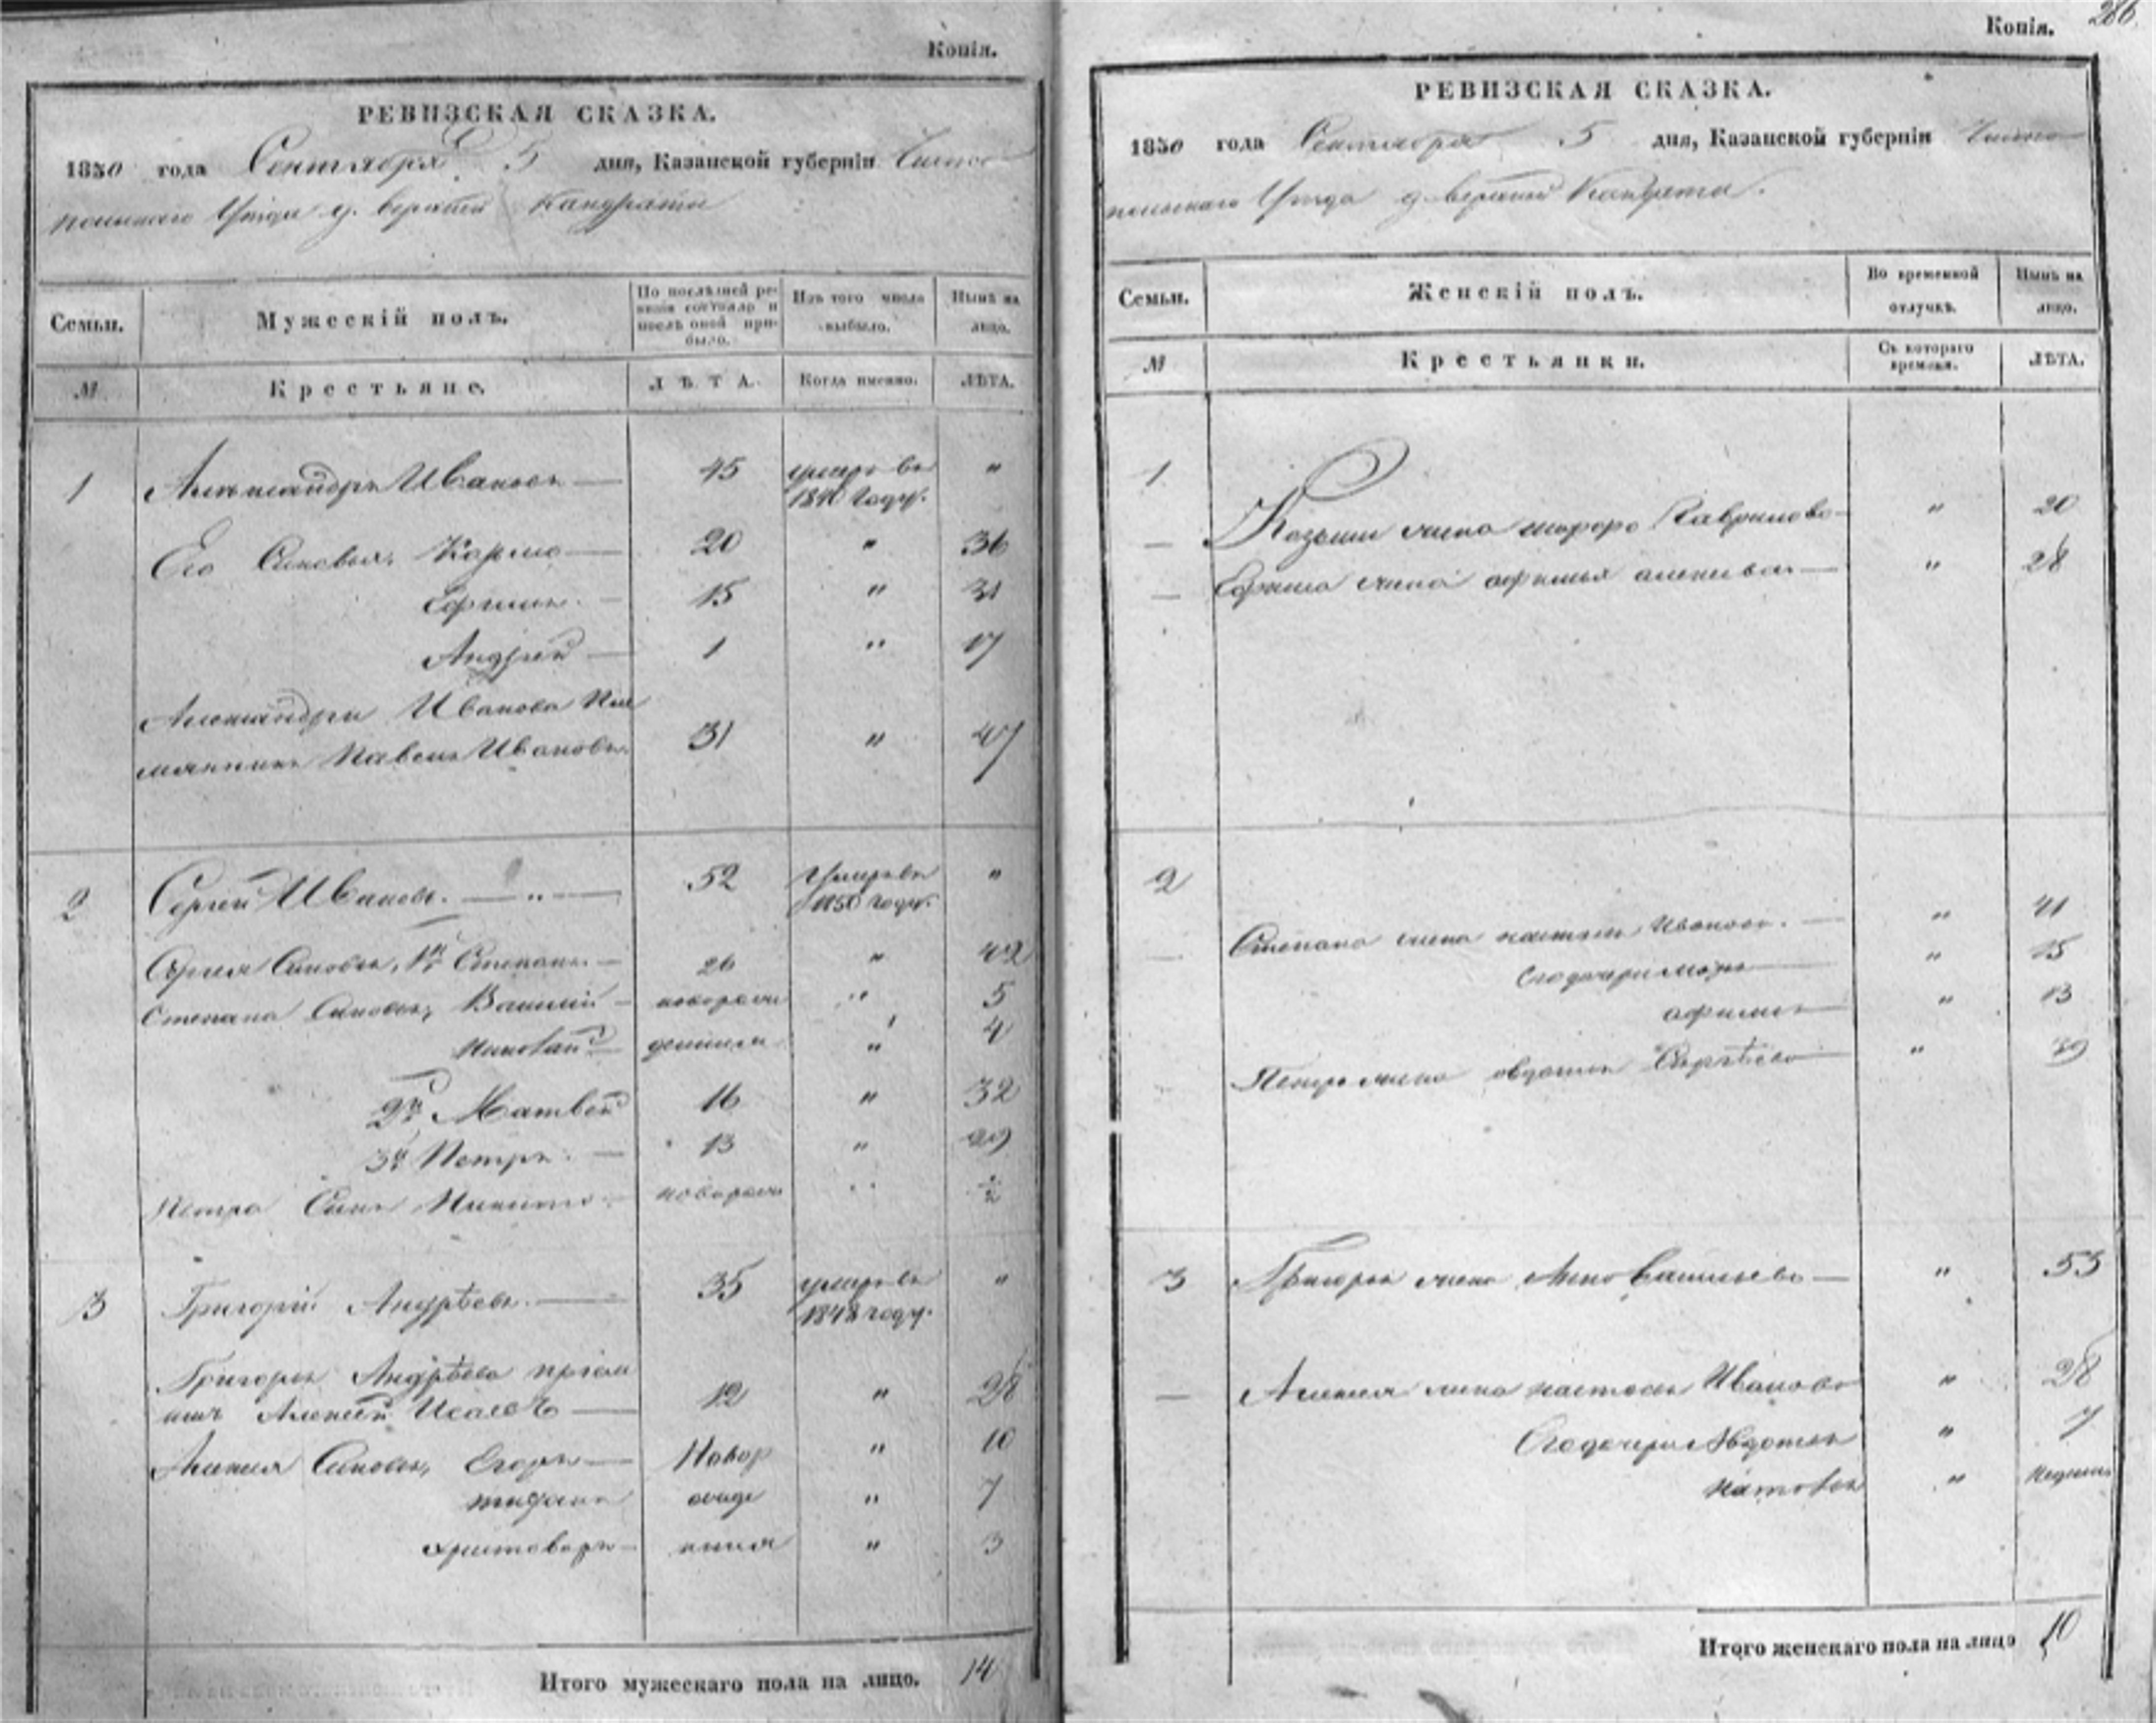 Копія.
РЕВИЗСКАЯ СКАЗКА.
1850 года Сентября 5 дня, Казанской губерніи Чисто
польскаго Уѣзда д. верхней Кандраты
Семьи.
Мужескій полъ.
По послѣдней ре-
визіи состояло и
послѣ оной при-
было.
Изъ того числа
выбыло.
Нынѣ на
лицо.
№
Крестьяне.
ЛѢТА.
Когда именно.
ЛѢТА.
1 Александръ Ивановъ — 45 умеръ въ 1840 году. "
Его Сыновья, Козма — 20 " 36
Ефимъ — 15 " 31
Андрей — 1 " 17
Александра Иванова Пле
мянникъ Павелъ Ивановъ 31 " 47
2 Сергей Ивановъ. — " — 52 Умеръ въ 1850 году. "
Сергея Сыновья, 1й Степанъ — 26 " 42
Степана Сыновья, Василий — новорож "  5
денныя " 4
2й Матвей 16 " 32
3й Петръ. — 13 " 29
Петра Сынъ Никита — новорож " ½
3 Григорій Андрѣевъ. — 35 умеръ въ 1848 году. "
Григорья Андрѣева пріем
ышъ Алексей Исаевъ — 12 " 28
Алексея Сыновья, Егоръ — Новор " 10
ожде " 7
христофоръ — нныя " 3
Итого мужескаго пола на лицо. 14
Копія. 286.
РЕВИЗСКАЯ СКАЗКА.
1850 года Сентября 5 дня, Казанской губерніи Чисто
польскаго Уѣзда д. верхней Кандраты.
Семьи.
Женскій полъ.
Во временной
отлучкѣ.
Нынѣ на
лицо.
№
Крестьянки.
Съ котораго
времени.
ЛѢТА.
1
— Козьмы жена Гаврилова — " 20
— Ефима жена афимья — " 28
2
— Степана жена настасья Иванова. — " 41
Его дочери " 15
афимья — " 13
Петра жена овдотья Сергѣева — " 29
3 Григорья жена Анна Васильева — " 53
— Алексея жена настасья Иванова " 28
Его дочери Авдотья " 7
Наталья " недели
Итого женскаго пола на лицо 10